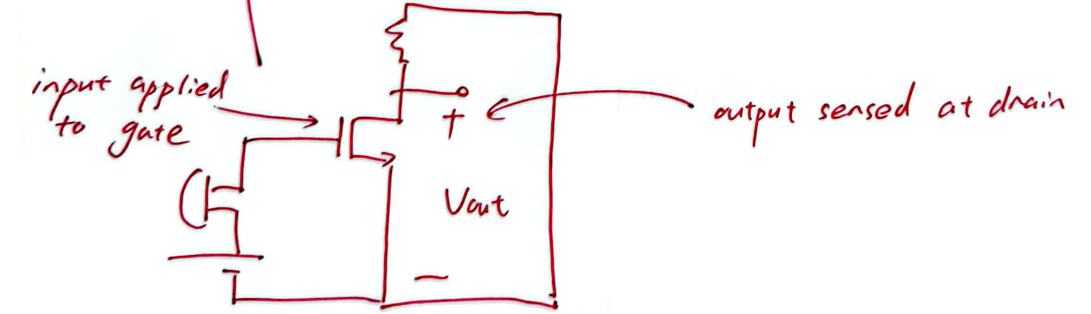 input applied
to gate
+
output sensed at drain
Vout
−